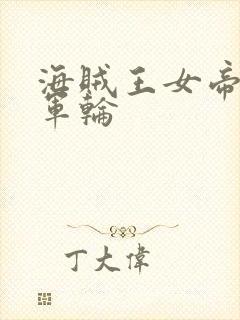 海賊王女帝
軍輪
丁大偉